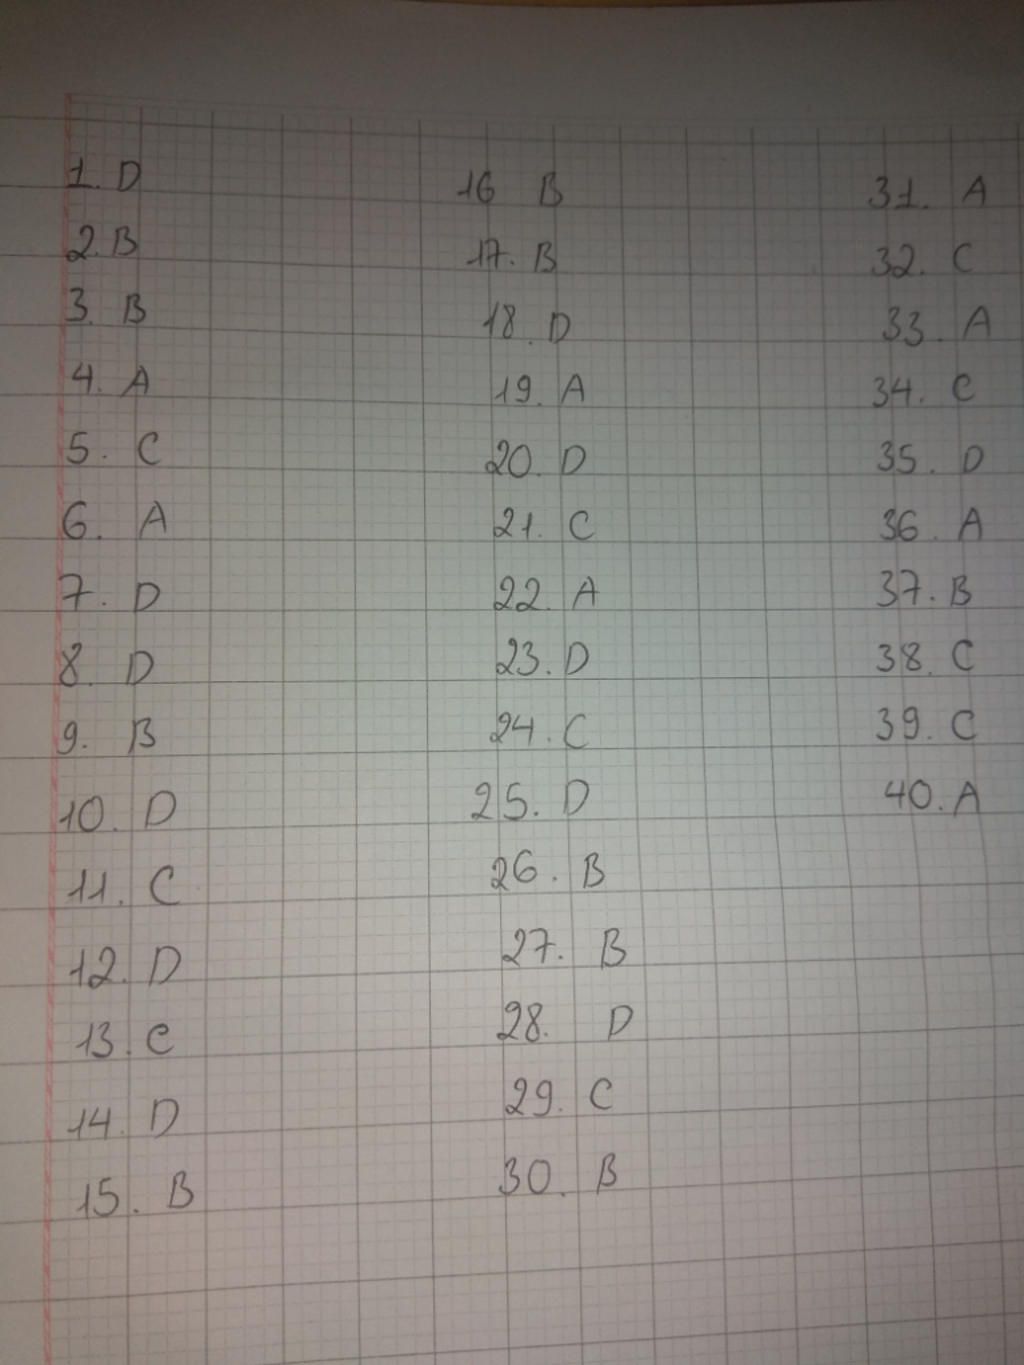 1. D
2. B
3. B
4. A
5. C
6. A
7. D
8. D
9. B
10. D
11. C
12. D
13. C
14. D
15. B
16 B
17. B
18. D
19. A
20. D
21. C
22. A
23. D
24. C
25. D
26. B
27. B
28. D
29. C
30. B
31. A
32. C
33. A
34. C
35. D
36. A
37. B
38. C
39. C
40. A